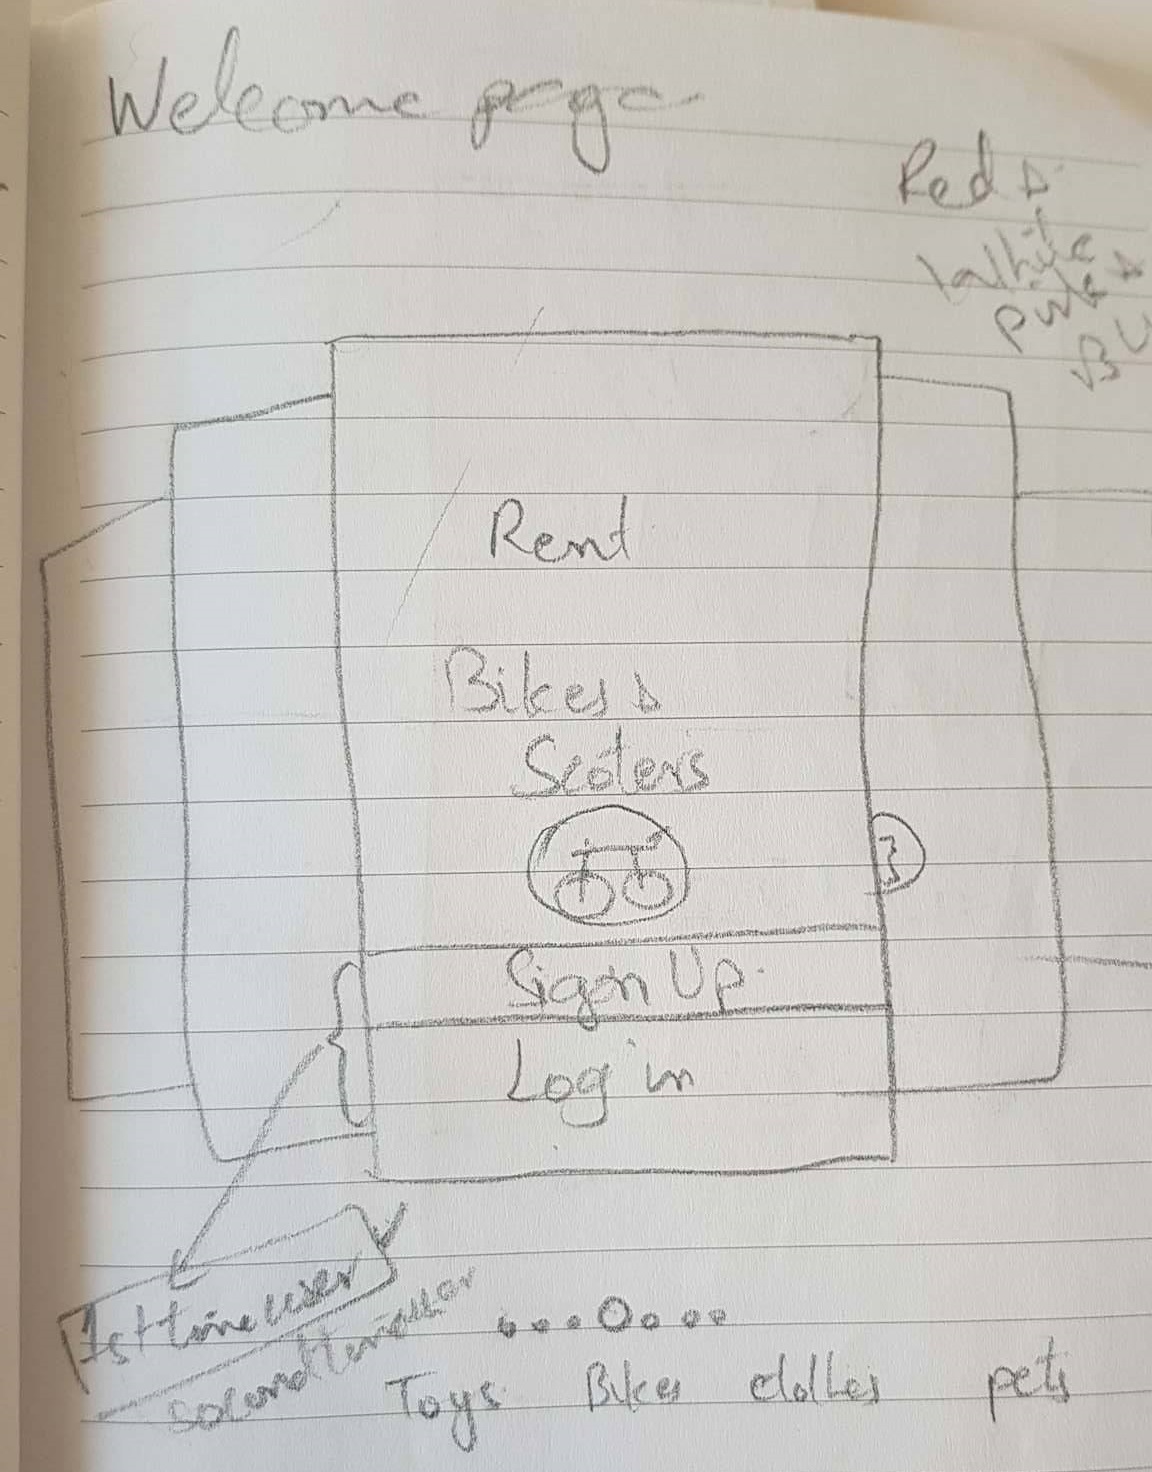 Welcome page
Red &
White
Pink &
Rent
Bikes &
Scoters
Sigon Up
Log in
1st time user
Toys Bikes clothes pets